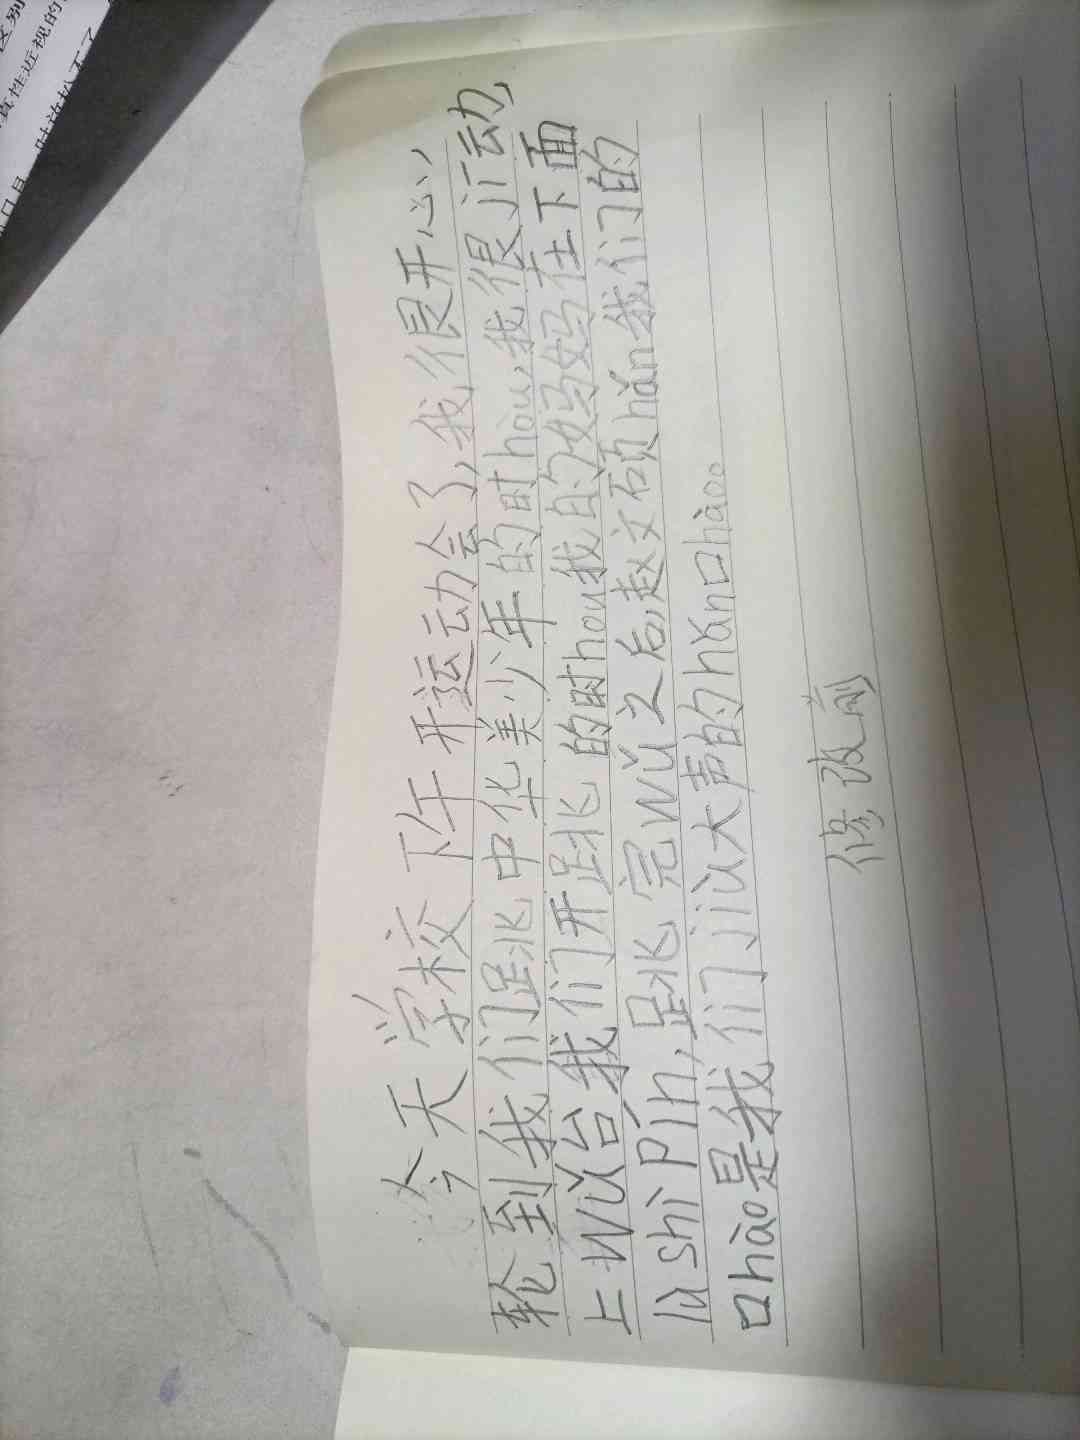 今天学校下午开运动会了,我很开心,
轮到我们跳中华美少年的时hòu,我很jī动,
上wǔ台我们开跳的时hou我的妈妈在下面
lù shì pín,跳完wǔ之后,赵文硕hǎn我们的
口hào是我们jiù大声的hǎn口hào。
修改前